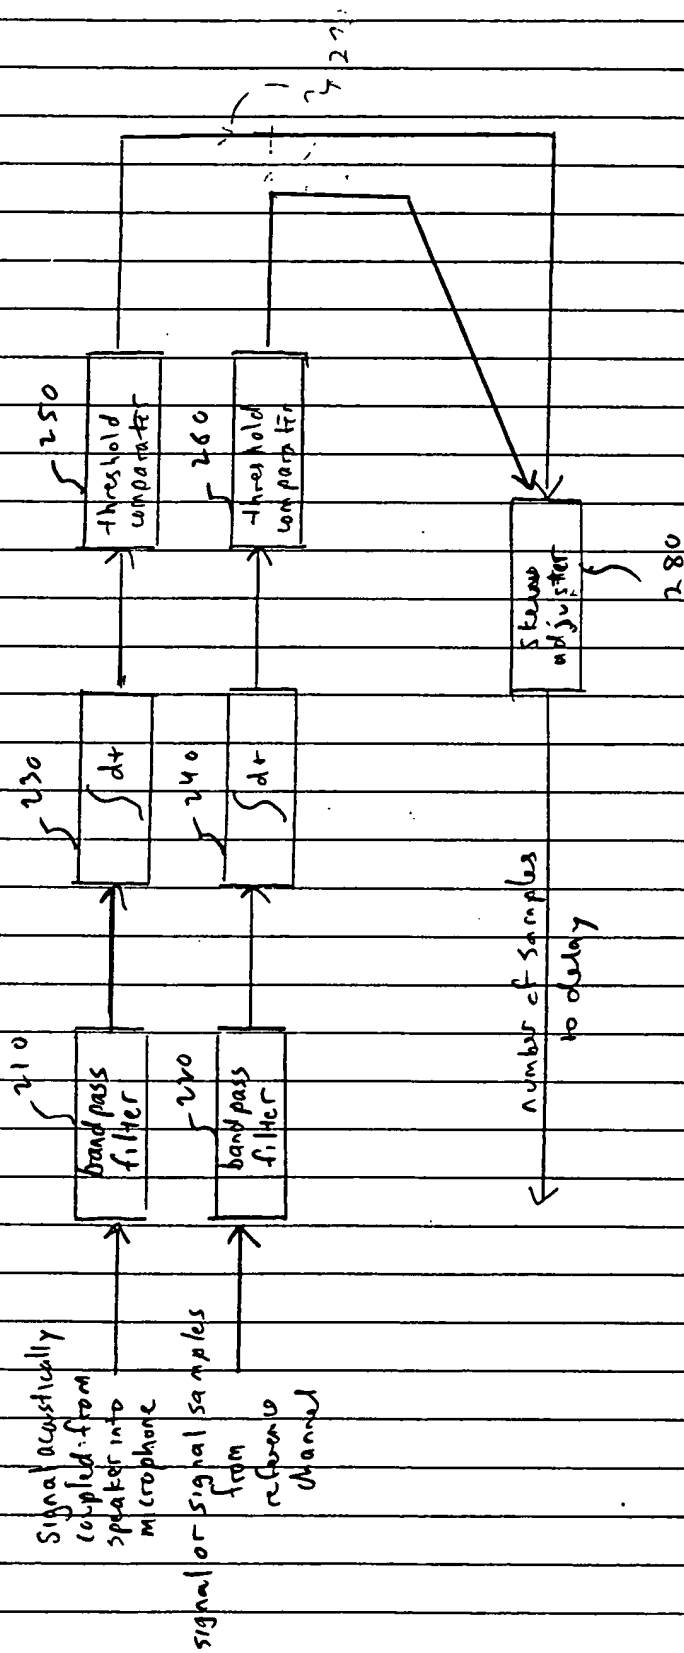 Signal acoustically
coupled from
speaker into
microphone
signal or signal samples
from
reference
channel
210
bandpass
filter
220
bandpass
filter
230
∫ dt
240
∫ dt
250
threshold
comparator
260
threshold
comparator
skew
adjuster
280
number of samples
to delay